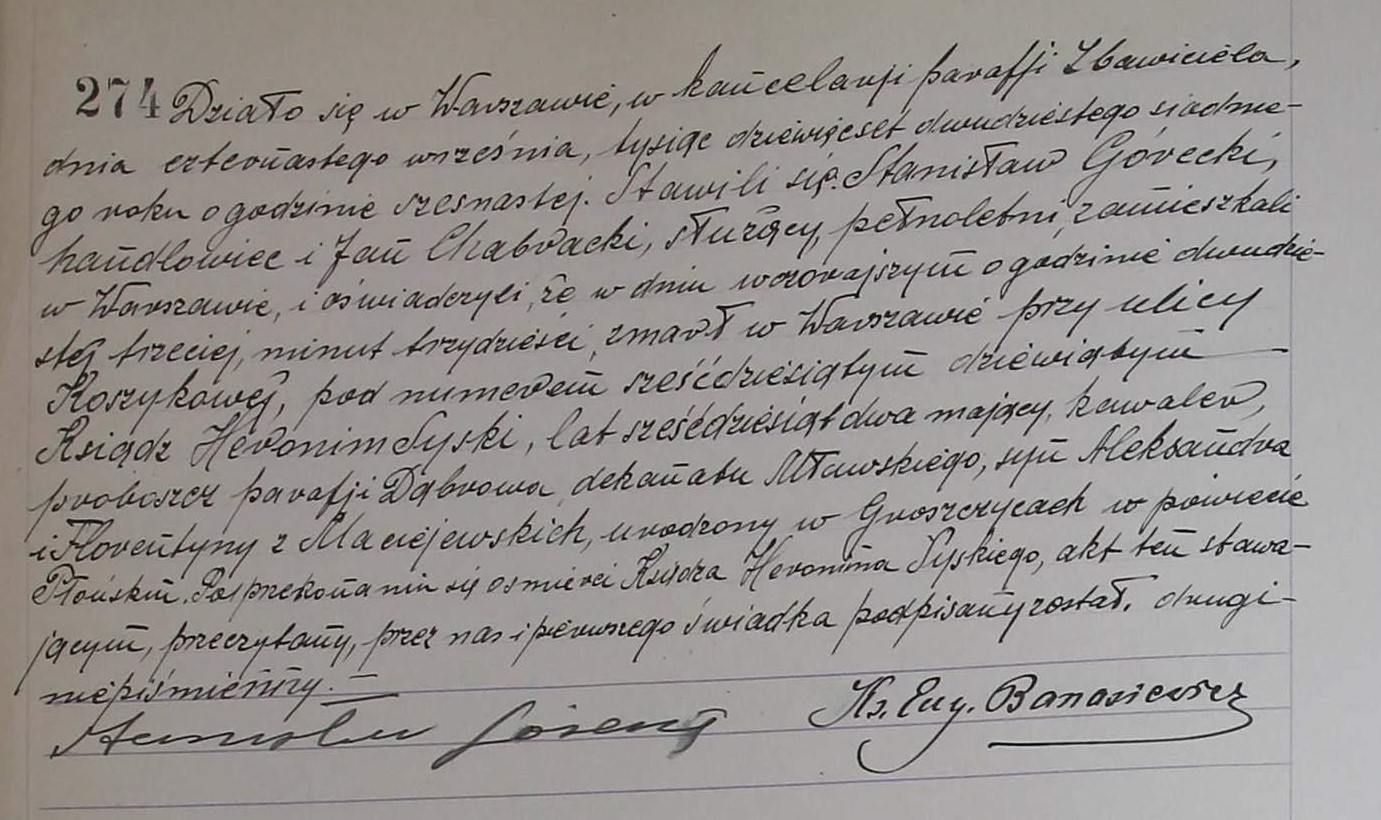 274 Działo się w Warszawie, w kancelarji parafji Zbawiciela,
dnia czternastego września, tysiąc dziewięćset dwudziestego siódme-
go roku o godzinie szesnastej. Stawili się. Stanisław Górecki,
handlowiec i Jan Chabracki, służący, pełnoletni, zamieszkali
w Warszawie, i oświadczyli, że w dniu wczorajszym o godzinie dwudzie-
stej trzeciej, minut trzydzieści, zmarł w Warszawie przy ulicy
Koszykowej, pod numerem sześćdziesiątym dziewiątym
Ksiądz Heronim Syski, lat sześćdziesiąt dwa mający, kawaler,
proboszcz parafji Dąbrowa, dekanatu Mławskiego, syn Aleksandra
i Florentyny z Maciejewskich, urodzony w Groszczycach w powiecie
Płońskim. Po przekonaniu się o śmierci Księdza Heronima Syskiego, akt ten stawa-
jącym, przeczytany, przez nas i pierwszego świadka podpisany został. drugi-
niepiśmienny. —
Stanisław Górecki Ks. Eug. Banasiewicz